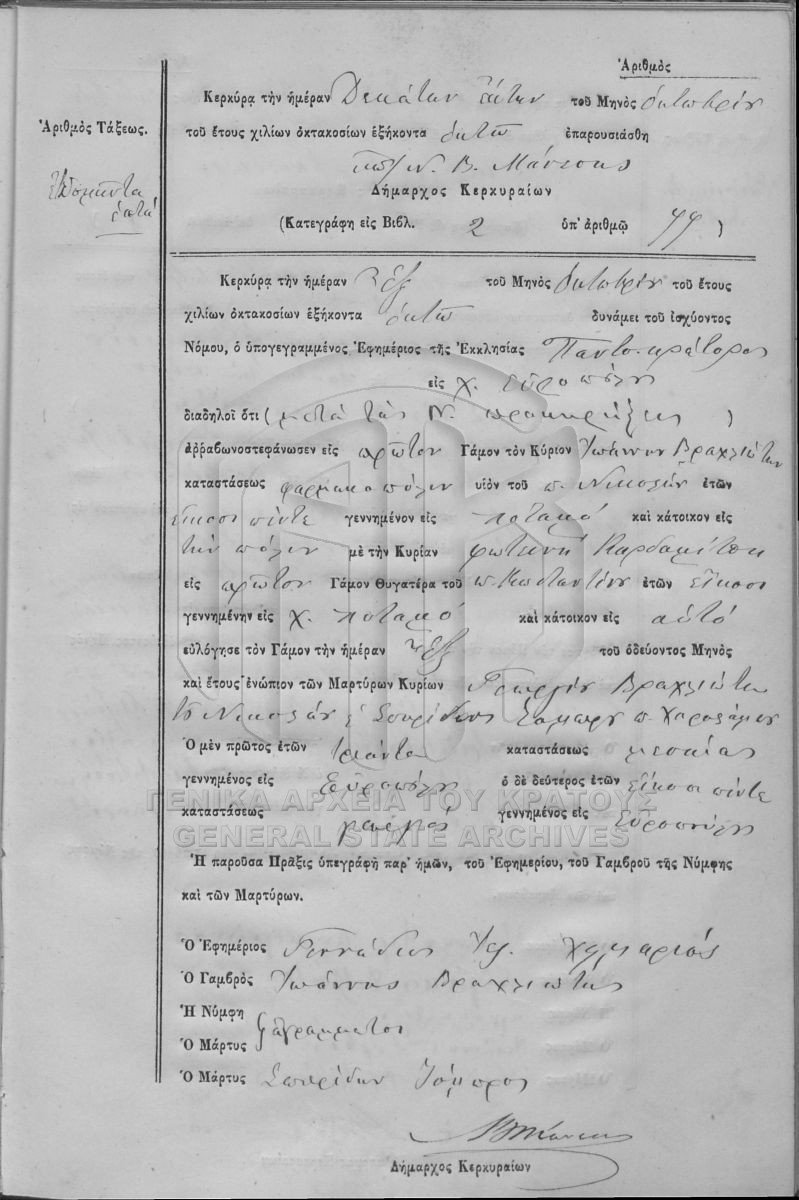 Ἀριθμὸς
Κερκύρᾳ τὴν ἡμέραν Δεκάτην ἕκτην τοῦ Μηνὸς Ὀκτωβρίου
Ἀριθμὸς Τάξεως.
τοῦ ἔτους χιλίων ὀκτακοσίων ἑξήκοντα ὀκτὼ ἐπαρουσιάσθη
Ἑβδομῆντα
ἑπτά
Β. Μάνεσης
Δήμαρχος Κερκυραίων
(Κατεγράφη εἰς Βιβλ. 2 ὑπ' ἀριθμῷ 77 )
Κερκύρᾳ τὴν ἡμέραν ἕξ τοῦ Μηνὸς Ὀκτωβρίου τοῦ ἔτους
χιλίων ὀκτακοσίων ἑξήκοντα ὀκτὼ δυνάμει τοῦ ἰσχύοντος
Νόμου, ὁ ὑπογεγραμμένος Ἐφημέριος τῆς Ἐκκλησίας Παντοκράτορος
εἰς χ. Εὐροπούλη
διαδηλοῖ ὅτι ( μετὰ τὰς Ν. προκηρύξεις )
ἀῤῥαβωνοστεφάνωσεν εἰς πρῶτον Γάμον τὸν Κύριον Ἰωάννην Βραχλιώτην
καταστάσεως φαρμακοπώλην υἱὸν τοῦ π. Νικολάου ἐτῶν
εἴκοσι πέντε γεννημένον εἰς Ποταμό καὶ κάτοικον εἰς
τὴν πόλιν μὲ τὴν Κυρίαν Φωτεινὴ Καρδαμίτση
εἰς πρῶτον Γάμον Θυγατέρα τοῦ π. Κωσταντίνου ἐτῶν εἴκοσι
γεννημένην εἰς χ. Ποταμό καὶ κάτοικον εἰς αὐτό
εὐλόγησε τὸν Γάμον τὴν ἡμέραν ἕξ τοῦ ὁδεύοντος Μηνὸς
καὶ ἔτους ἐνώπιον τῶν Μαρτύρων Κυρίων Γεωργίου Βραχλιώτη
τοῦ Νικολάου Σπυρίδωνος π. Χαραλάμπου
Ὁ μὲν πρῶτος ἐτῶν τριάντα καταστάσεως μεσαίας
γεννημένος εἰς Εὐροπούλη ὁ δὲ δεύτερος ἐτῶν εἴκοσι πέντε
καταστάσεως γεννημένος εἰς Εὐροπούλη
ΓΕΝΙΚΑ ΑΡΧΕΙΑ ΤΟΥ ΚΡΑΤΟΥΣ
GENERAL STATE ARCHIVES
Ἡ παροῦσα Πρᾶξις ὑπεγράφη παρ' ἡμῶν, τοῦ Ἐφημερίου, τοῦ Γαμβροῦ τῆς Νύμφης
καὶ τῶν Μαρτύρων.
Ὁ Ἐφημέριος Γεννάδιος
Ὁ Γαμβρὸς Ἰωάννης Βραχλιώτης
Ἡ Νύμφη
ἀγράμματοι
Ὁ Μάρτυς
Ὁ Μάρτυς Σπυρίδων
Δήμαρχος Κερκυραίων